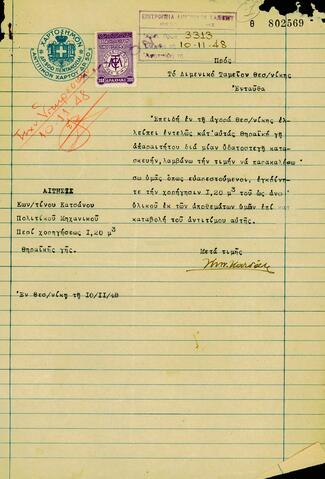 ΧΑΡΤΟΣΗΜΟΝ
Θ 802569
3313
10-11-48
Πρός
Τό Λιμενικό Ταμεῖον Θεσ/νίκης
Ἐνταῦθα
10.11.48
Ἐπειδή ἐν τῇ ἀγορᾷ Θεσ/νίκης ἐλ
λείπει ἐντελῶς κατ'αὐτάς Θηραϊκή γῆ
ἀπαραιτήτου διά μίαν ὑδατοστεγῆ κατα-
σκευήν, λαμβάνω τήν τιμήν νά παρακαλέσω
ὑμᾶς ὅπως εὐαρεστούμενοι, ἐγκρίνη-
τε τήν χορήγησιν 1,20 μ3 τοῦ ὡς ἄνω
ὑλικοῦ ἐκ τῶν ἀποθεμάτων ὑμῶν ἐπί
καταβολῇ τοῦ ἀντιτίμου αὐτῆς.
ΑΙΤΗΣΙΣ
Κων/τίνου Κατσάνου
Πολιτικοῦ Μηχανικοῦ
Περί χορηγήσεως 1,20 μ3
Θηραϊκῆς γῆς.
Μετά τιμῆς
Ἐν Θεσ/νίκῃ τῇ 10/11/48